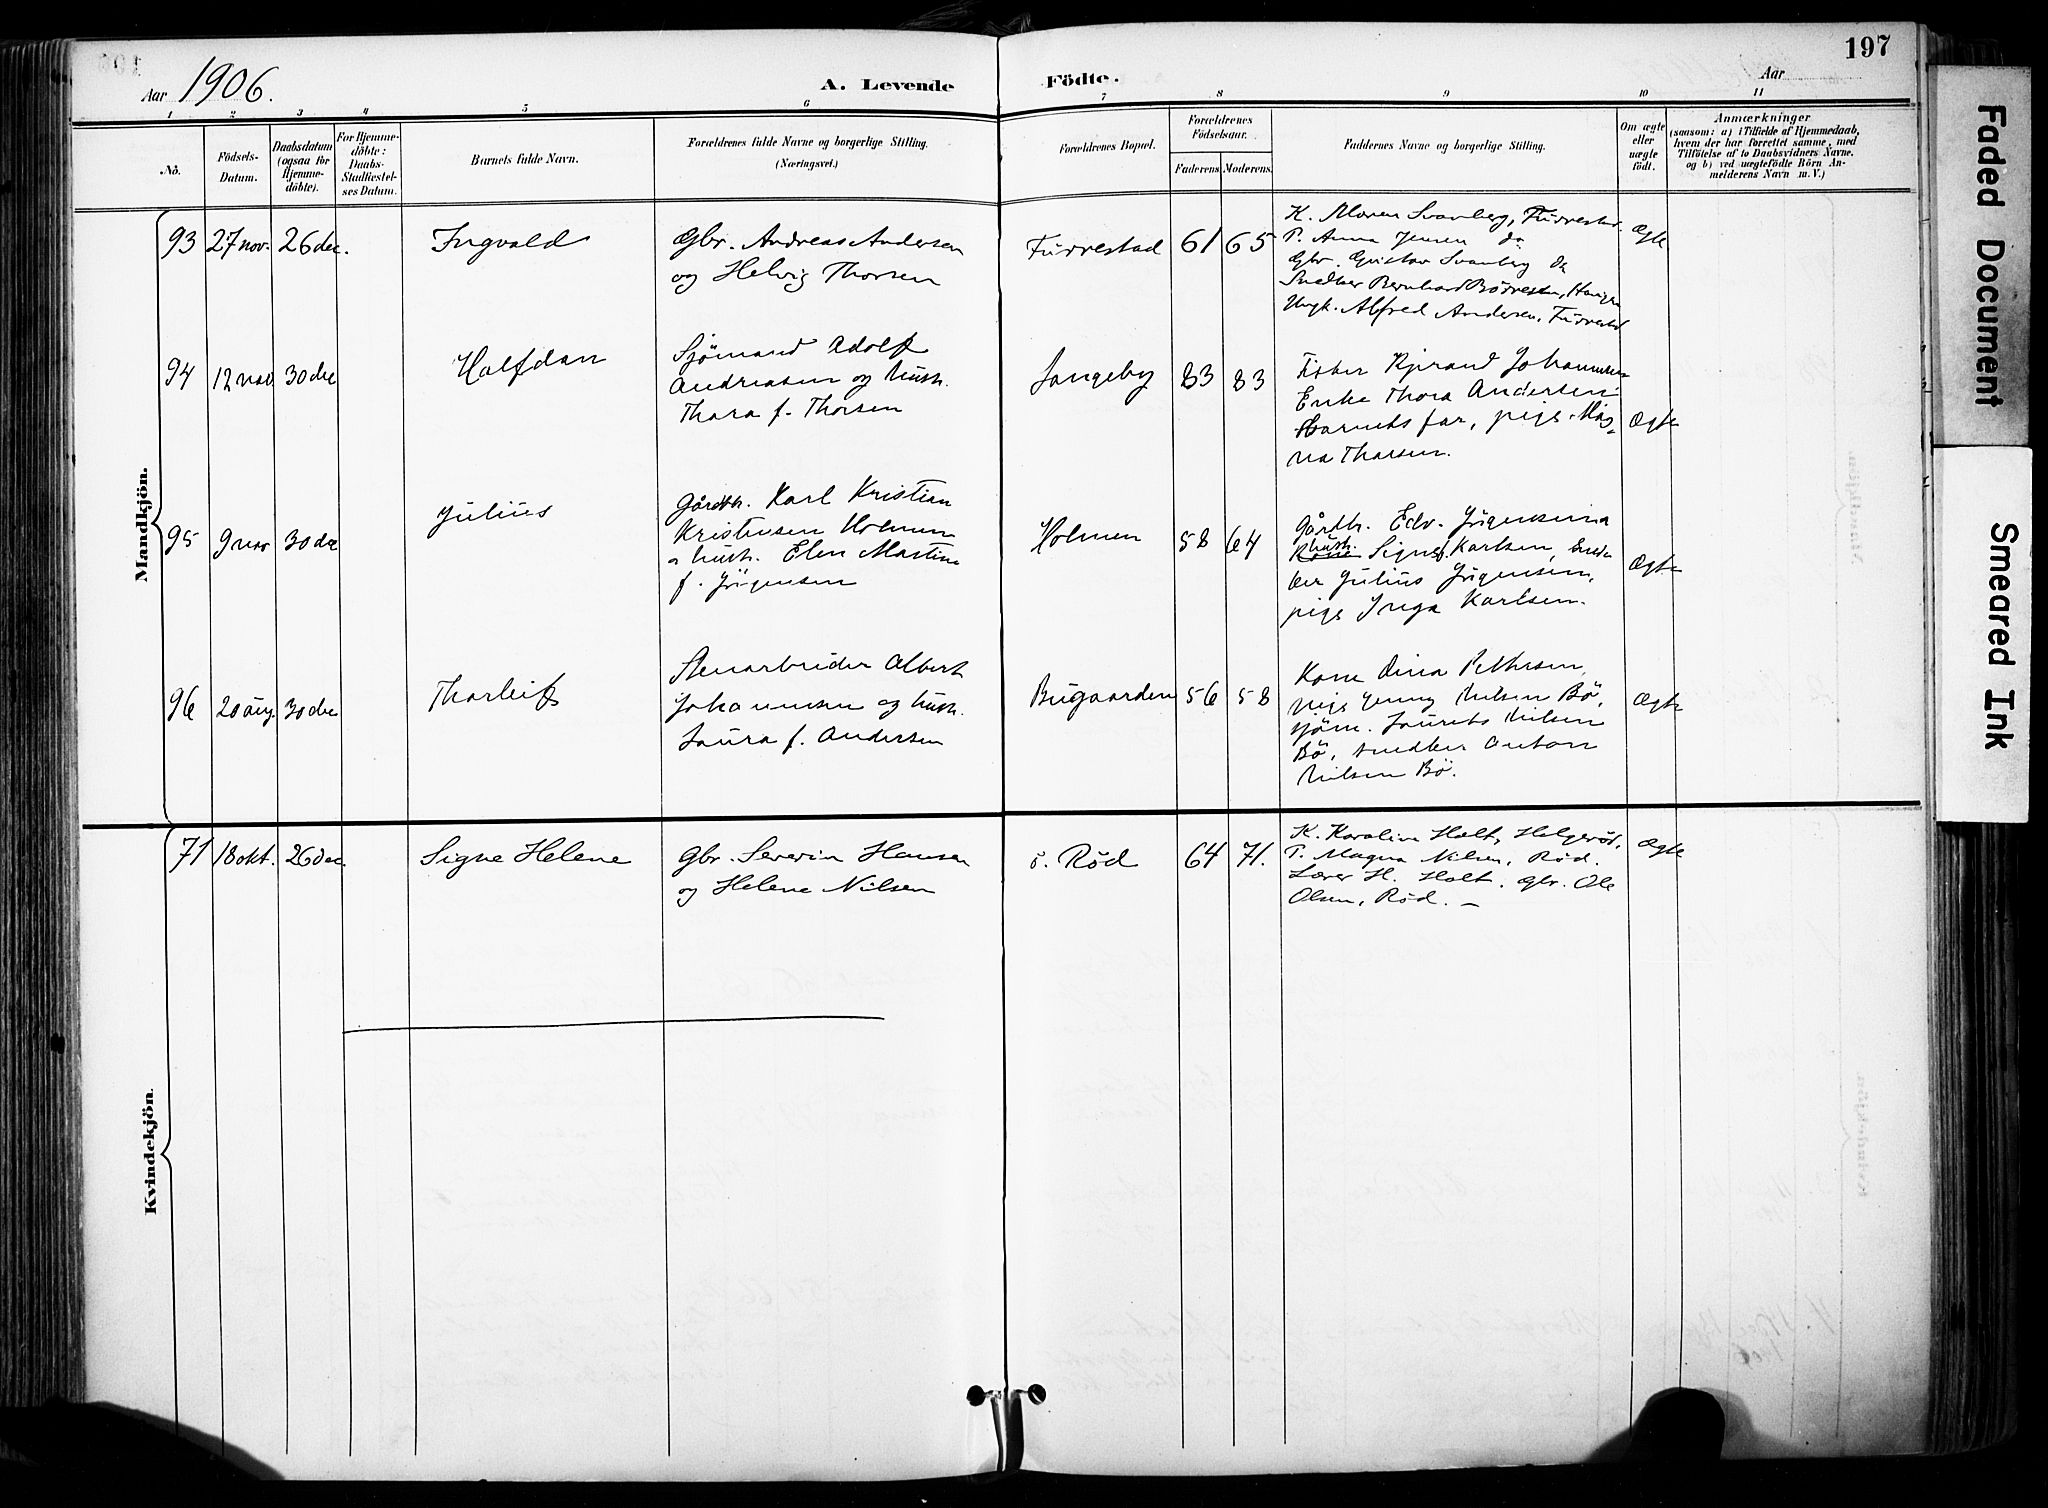 197
Aar 1906.
A. Levende Födte.
Aar
1 2 3 4 5 6 7 8 9 10 11
No.
Födsels-Datum.
Daabsdatum (ogsaa for Hjemme-döbte).
For Hjemme-döbte: Daabs-Stadfæstel-ses Datum.
Barnets fulde Navn.
Forældrenes fulde Navne og borgerlige Stilling. (Næringsvei.)
Forældrenes Bopæl.
Forældrenes Födselsaar.
Faderens. Moderens.
Faddernes Navne og borgerlige Stilling.
Om ægte eller uægte födt.
Anmærkninger
(saasom: a) i Tilfælde af Hjemmedaab,
hvem der har forrettet samme, med
Tilföielse af to Daabsvidners Navne.
og b) ved uægtefödte Börn An-
melderens Navn m. V.)
Mandkjön.
93 27 nov. 26 dec. Ingvald
Gbr. Andreas Andersen
og Helvig Thorsen
Furrestad 61 65
K. Maren Svanberg, Furrestad.
P. Anna Jensen do
Gbr. Gustav Svanberg do
Snedker Bernhard Börresen,
Ungk. Alfred Andersen, Furrestad
Ægte
94 12 nov 30 dec Halfdan
Sjömand Adolf
Andreasen og hust.
Thora f. Thorsen
Langeby 83 83
Fisker Johannesen
Enke Thora Andersen
Barnets far, pige Mag-
na Thorsen.
Ægte
95 9 nov 30 dec Julius
Gårdbr. Karl Kristian
Kristensen Holmen
o hust. Elen Martine
f. Jörgensen
Holmen 58 64
Gårdbr. Edv. Jörgensen
hust. Signe f. Karlsen, Sned-
ker Julius Jörgensen,
pige Inga Karlsen.
Ægte
96 20 aug. 30 dec Thorleif
Stenarbeider Albert
Johannesen og hust.
Laura f. Andersen
Bugaarden 56 58
Kone Dina Pettersen,
pige Jenny Nilsen Bö,
sjöm. Laurits Nilsen
Bö, snedker Anton
Nilsen Bö.
Ægte
Kvindekjön.
71 18 okt. 26 dec. Signe Helene
Gbr. Severin Hansen
og Helene Nilsen
ö. Röd 64 71.
K. Karoline Holt, Helgeröd,
P. Magna Nilsen, Röd.
Lærer H. Holt. Gbr. Ole
Olsen, Röd. —
Ægte
Faded Document
Smeared Ink